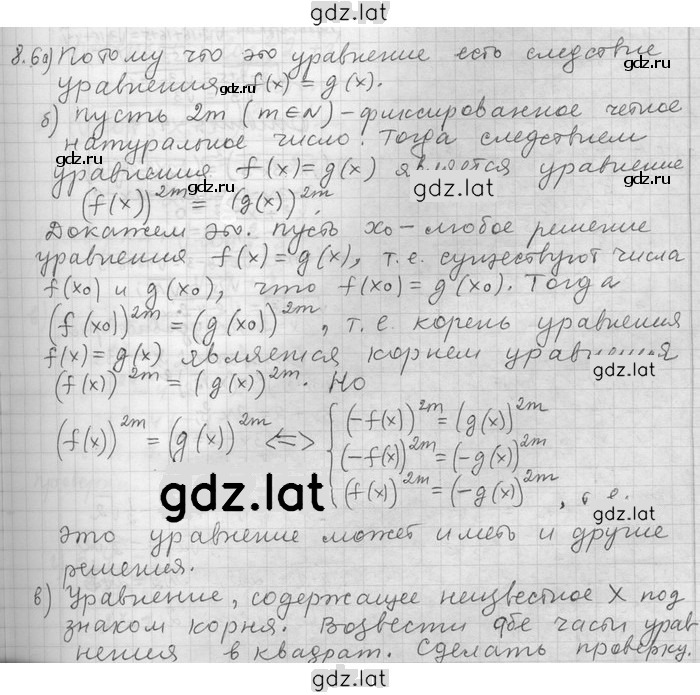 gdz.lat
8.6а) Потому что это уравнение есть следствие
gdz.lat
уравнения f(x) = g(x).
gdz.lat
б) пусть 2m (m∈N) - фиксированное четное
натуральное число. Тогда следствием
gdz.lat
уравнения f(x)=g(x) является уравнение
gdz.lat gdz.lat
(f(x))^2m = (g(x))^2m.
Докажем это. пусть x0 - любое решение
уравнения f(x)=g(x), т.е. существуют числа
f(x0) и g(x0), что f(x0)=g(x0). Тогда
(f(x0))^2m = (g(x0))^2m, т.е. корень уравнения
f(x)=g(x) является корнем уравнения
gdz.lat
(f(x))^2m = (g(x))^2m. Но
(f(x))^2m = (g(x))^2m <=> { (-f(x))^2m = (g(x))^2m
(-f(x))^2m = (-g(x))^2m
(f(x))^2m = (-g(x))^2m, т.е.
gdz.lat gdz.lat
это уравнение может иметь и другие
решения.
в) Уравнение, содержащее неизвестное X под
знаком корня. Возвести обе части урав
нения в квадрат. Сделать проверку.
gdz.lat